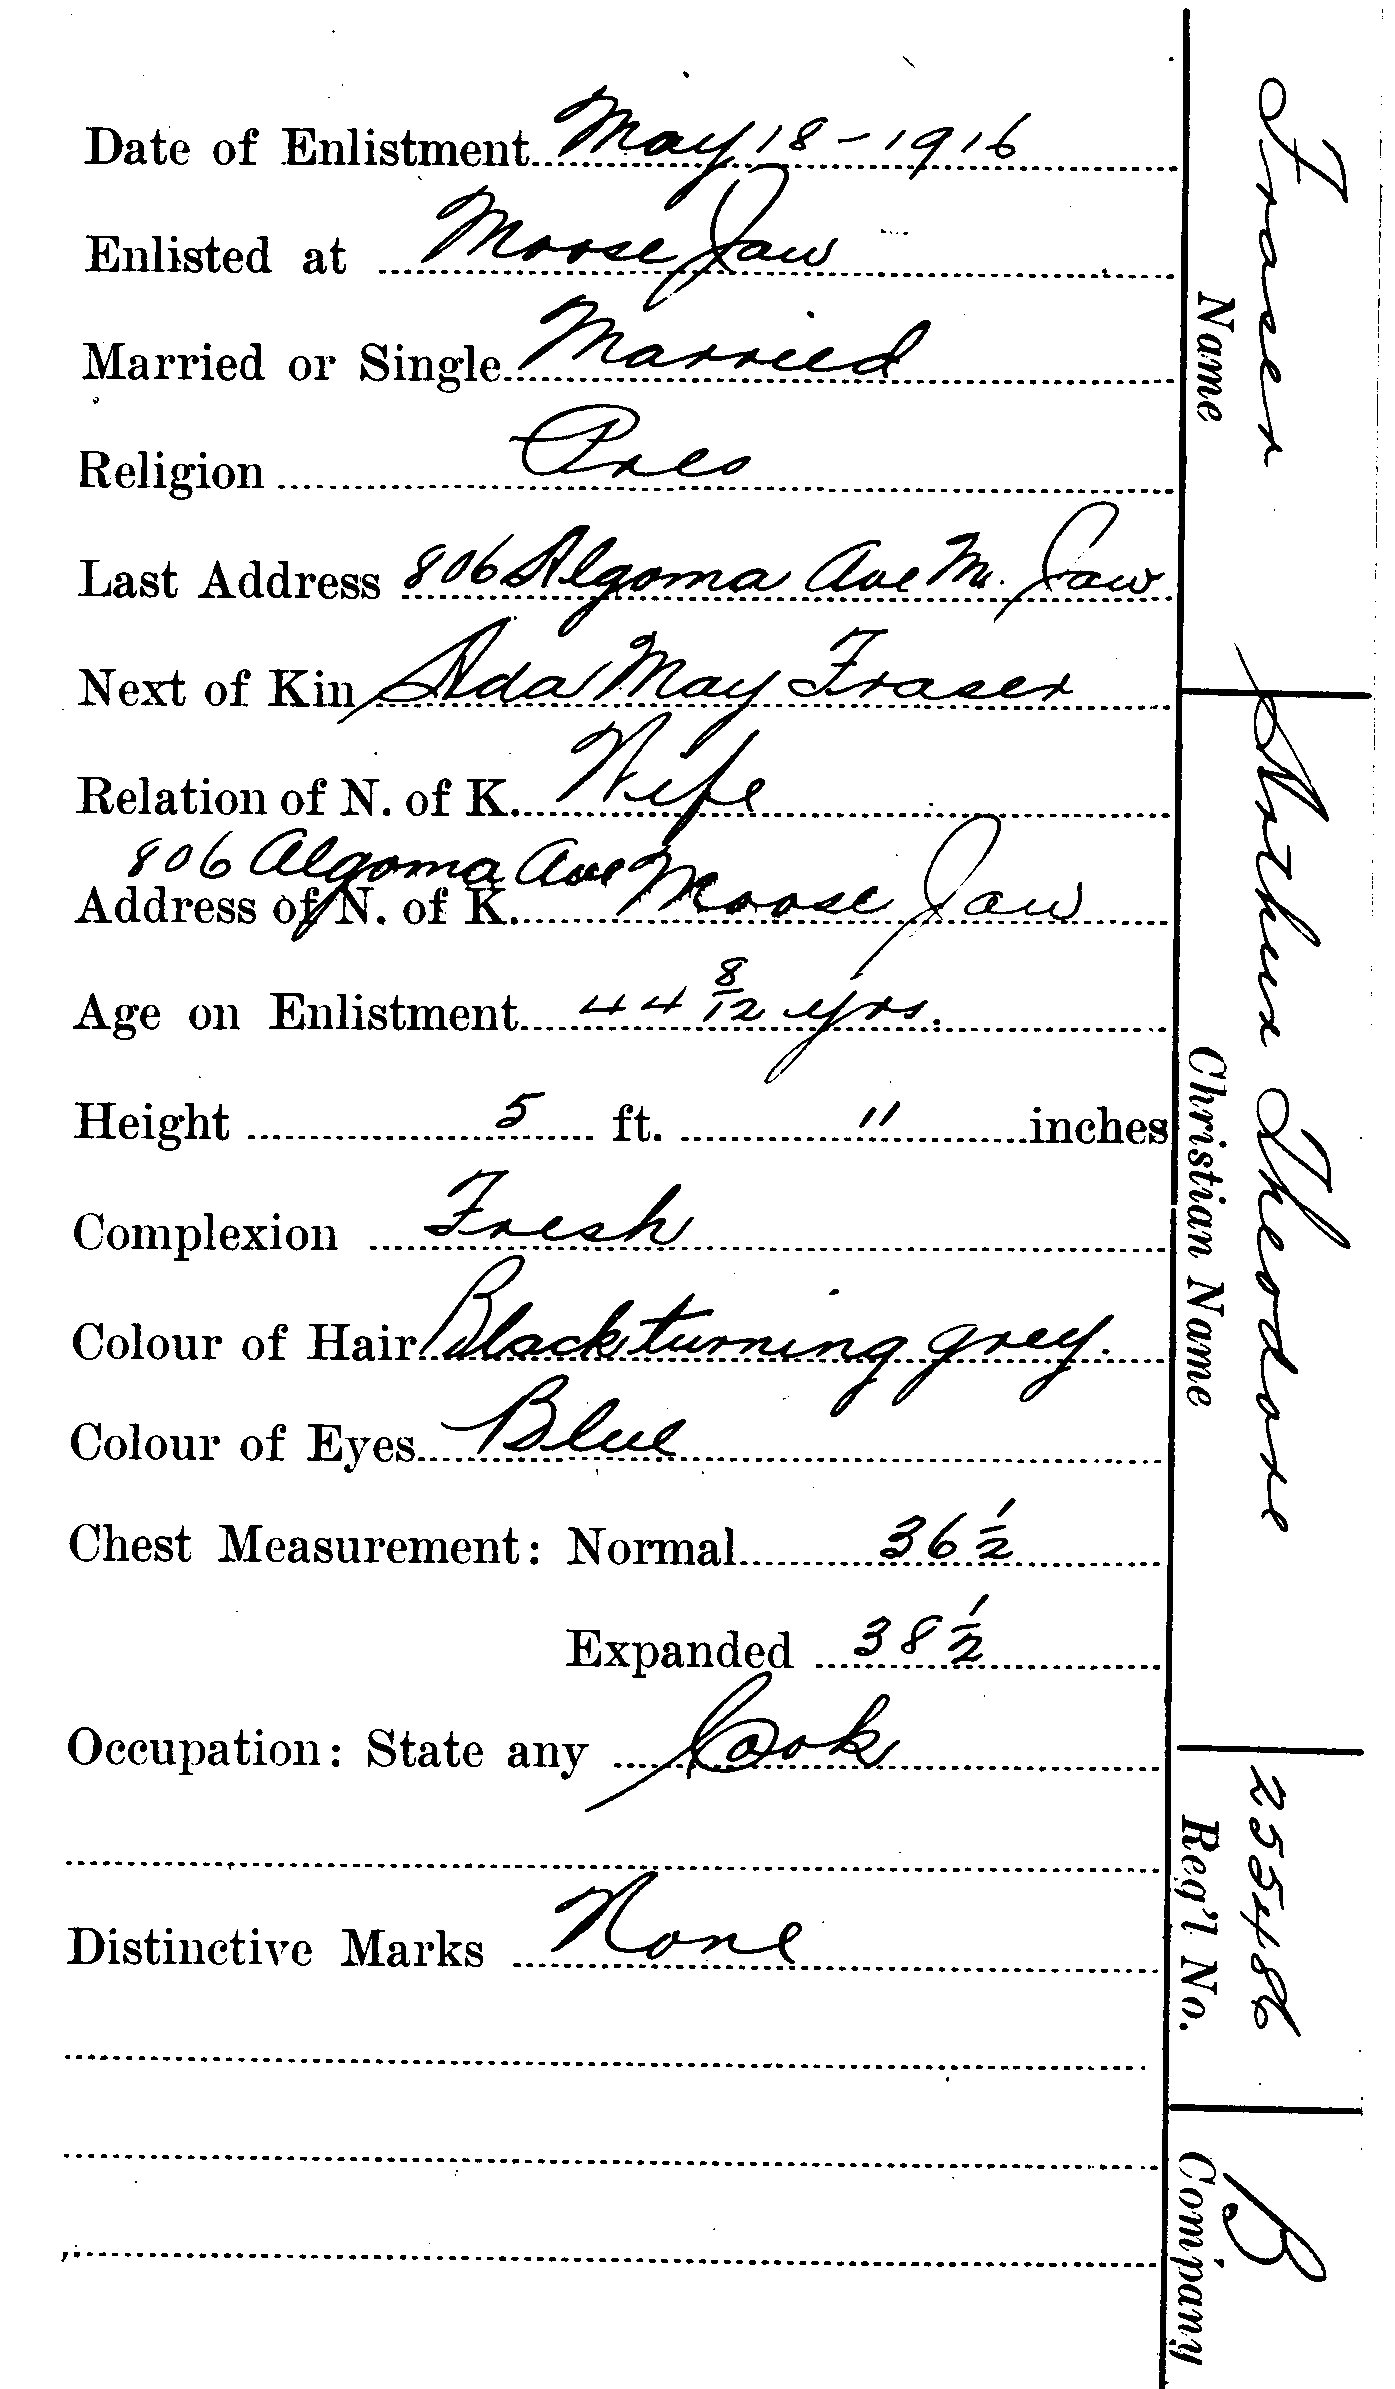 Date of Enlistment May 18 - 1916
Enlisted at Moose Jaw
Married or Single Married
Religion Pres
Last Address 806 Algoma Ave M. Jaw
Next of Kin Ada May Fraser
Relation of N. of K. Wife
806 Algoma Ave
Address of N. of K. Moose Jaw
Age on Enlistment 44 8/12 yrs.
Height 5 ft. 11 inches
Complexion Fresh
Colour of Hair Black turning grey.
Colour of Eyes Blue
Chest Measurement: Normal 36 1/2
Expanded 38 1/2
Occupation: State any Cook
Distinctive Marks None
Fraser
Name
Arthur Theodore
Christian Name
255486
Reg'l No.
B
Company